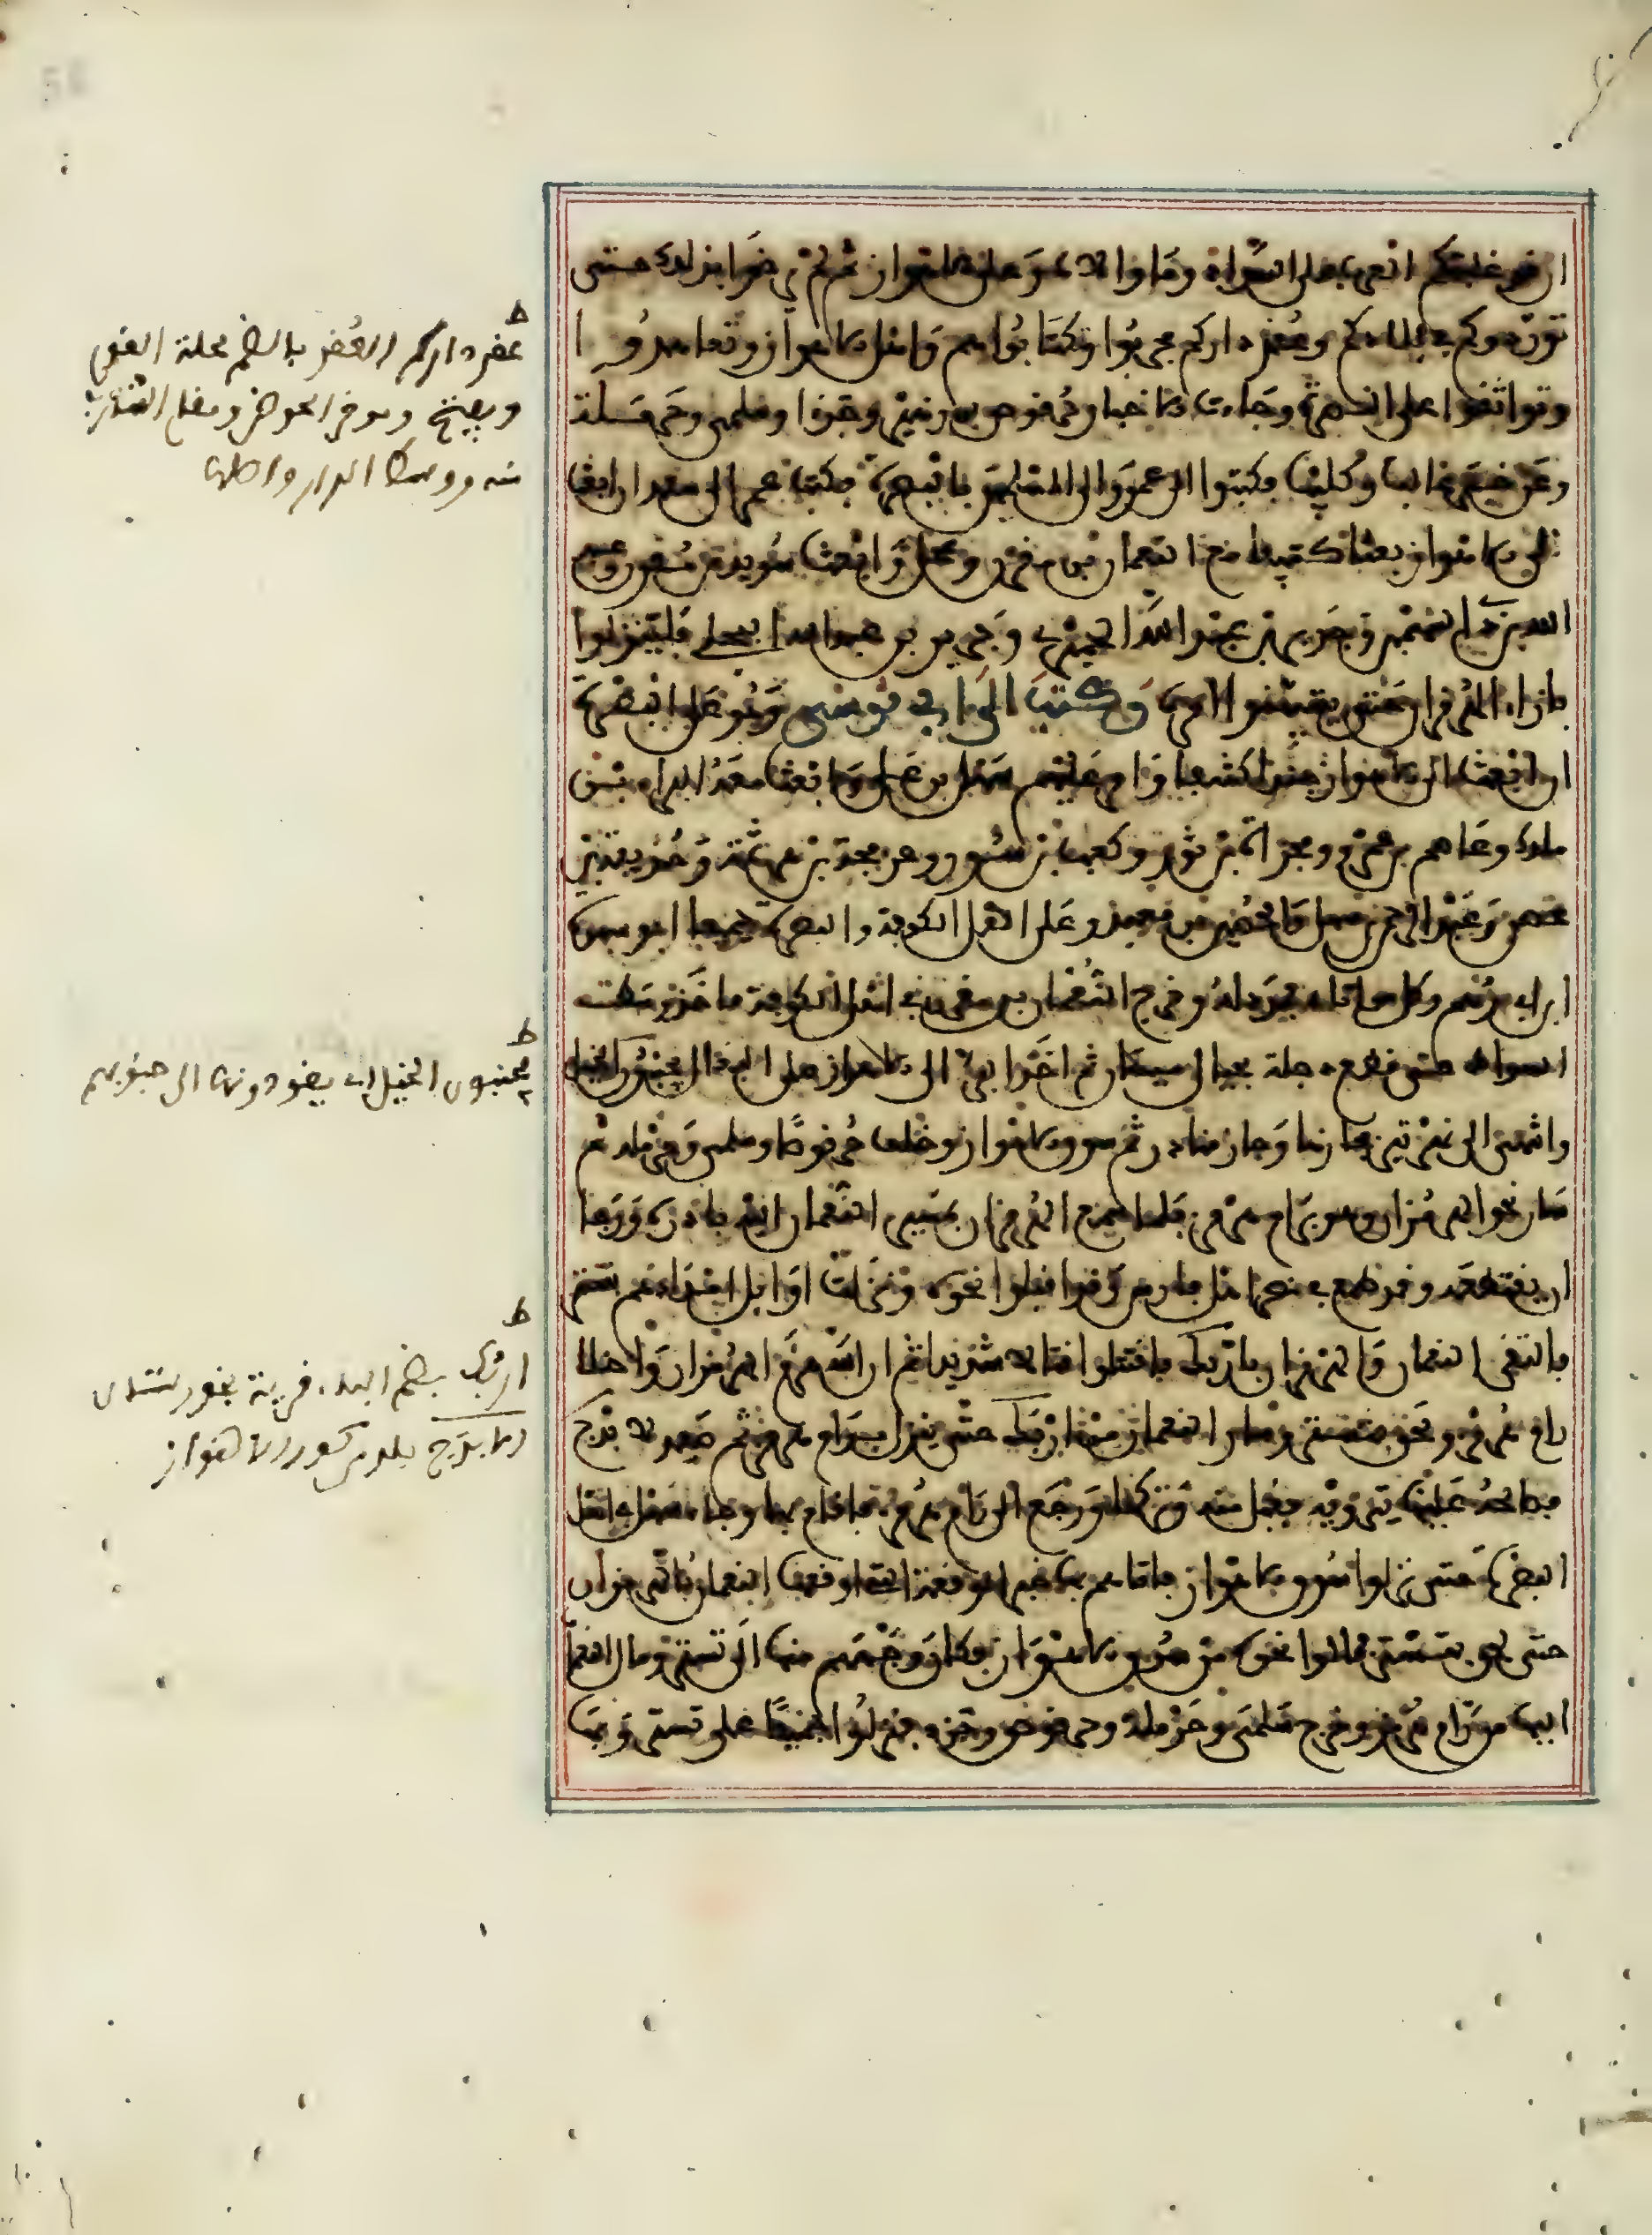 ان قد غلبتكم العرب على السواد وما والاه على الاهواز ثم لم يرضوا بذلك حتى
توردوكم في بلادكم وعقر داركم فتحركوا وتكاتبوا هم واهل الاهواز وتعاهدوا
وتواثقوا على النصرة وجاءت الاخبار حرقوص بن زهير وجزءا وسلمى وحرملة
وعن خبر غالب وكليب فكتبوا الى عمر والى المسلمين بالبصرة فكتب عمر الى سعد ان ابعث
الى الاهواز بعثا كثيفا مع النعمان بن مقرن وعجل وابعث سويد بن مقرن وعبد
الله بن ذي السهمين وجرير بن عبد الله الحميري وجرير بن عبد الله البجلي فلينزلوا
بازاء الهرمزان حتى يتبينوا امره وكتب الى ابي موسى وهو على البصرة
ان ابعث الى الاهواز جندا كثيفا وامر عليهم سهل بن عدي وابعث معه البراء بن
مالك وعاصم بن عمرو ومجزاة بن ثور وكعب بن سور وعرفجة بن هرثمة وحذيفة بن
محصن وعبد الرحمن بن سهل والحصين بن معبد وعلى اهل الكوفة والبصرة جميعا ابو سبرة
ابن ابي رهم وكل من اتاه فمدد له وخرج النعمان بن مقرن في اهل الكوفة فاخذ وسط
السواد حتى قطع دجلة بحيال ميسان ثم اخذ البر الى الاهواز على البغال يجنبون الخيل
وانتهى الى نهر تيرى فجازها وجاز مناذر ثم سوق الاهواز وخلف حرقوصا وسلمى وحرملة ثم
سار نحو الهرمزان وهو برام هرمز فلما سمع الهرمزان بمسير النعمان اليه بادره ورجا
ان يقتطعه وقد طمع في نصر اهل فارس وقد اقبلوا نحوه ونزلت اوايل امدادهم تستر
فالتقى النعمان والهرمزان باربك فاقتتلوا قتالا شديدا ثم ان الله هزم الهرمزان واخلى
رام هرمز ولحق بتستر وسار النعمان من اربك حتى ينزل برام هرمز ثم صعد لايذج
فصالحه عليها تيرويه فقبل منه وتركه ورجع الى رام هرمز فاقام بها وجاء سهل في اهل
البصرة حتى نزلوا سوق الاهواز فاتاهم بها خبر الوقعة التي اوقعها النعمان بالهرمزان
حتى لحق بتستر فمالوا نحوه من سوق الاهواز فكان وجههم منها الى تستر ومال النعمان
اليها من رام هرمز وخرج سلمى وحرملة وحرقوص وجزء فنزلوا جميعا على تستر وبها
ط
عقر داركم العقر بالضم محلة القوم
ويفتح وموخر الحوض ومقام الشارب
منه ووسط الدار واصلها
ط
يجنبون الخيل اي يقودونها الى جنوبهم
ط
اربك بضم الباء قرية بخوزستان
وايذج بلد من كور الاهواز